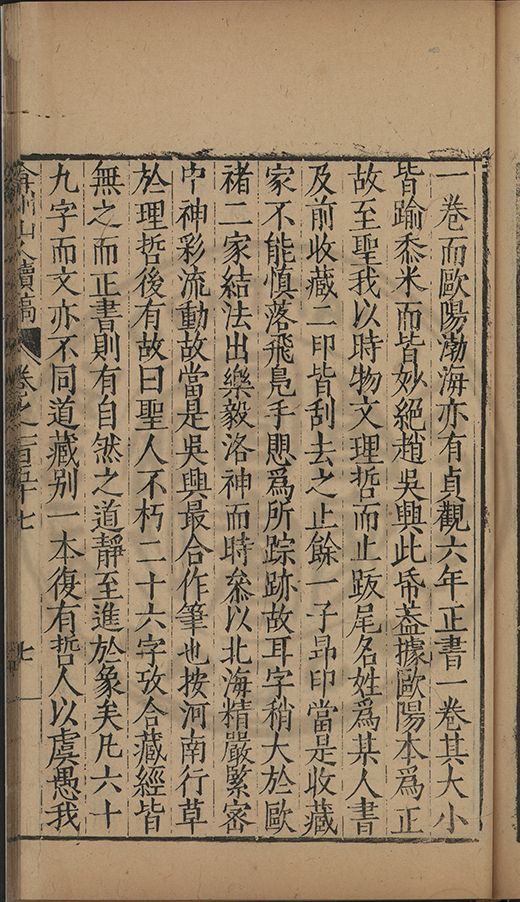 一卷而歐陽渤海亦有貞觀六年正書一卷其大小
皆踰黍米而皆妙絕趙吳興此帋葢據歐陽本爲正
故至聖我以時物文理哲而止䟦尾名姓爲某人書
及前收藏二印皆刮去之止餘一子昻印當是收藏
家不能慎落飛鳬手思爲所踪跡故耳字稍大於歐
褚二家結法出樂毅洛神而時叅以北海精嚴緊宻
中神彩流動故當是吳興最合作筆也按河南行草
於理哲後有故曰聖人不朽二十六字攷合藏經皆
無之而正書則有自然之道靜至進於象矣凡六十
九字而文亦不同道藏别一本復有哲人以虞愚我
弇州山人續稿 卷之一百五十七 七